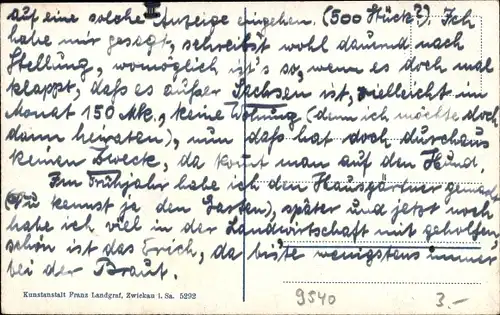 auf eine solche Anzeige eingehen. (500 Stück?) Ich
habe mir gesagt, schreibst wohl dauernd nach
Stellung, womöglich ist's so, wenn es doch mal
klappt, daß es außer Sachsen ist, vielleicht im
Monat 150 Mk., keine Wohnung (denn ich möchte doch
dann heiraten), nun daß hat doch durchaus
keinen Zweck, da kommt man auf den Hund.
Im Frühjahr habe ich den Hausgärtner gemacht
(Du kennst ja den Garten), später und jetzt noch
habe ich viel in der Landwirtschaft mit geholfen,
schön ist das Erich, da biste wenigstens immer
bei der Braut.
Kunstanstalt Franz Landgraf, Zwickau i. Sa. 5292
9540
3.-